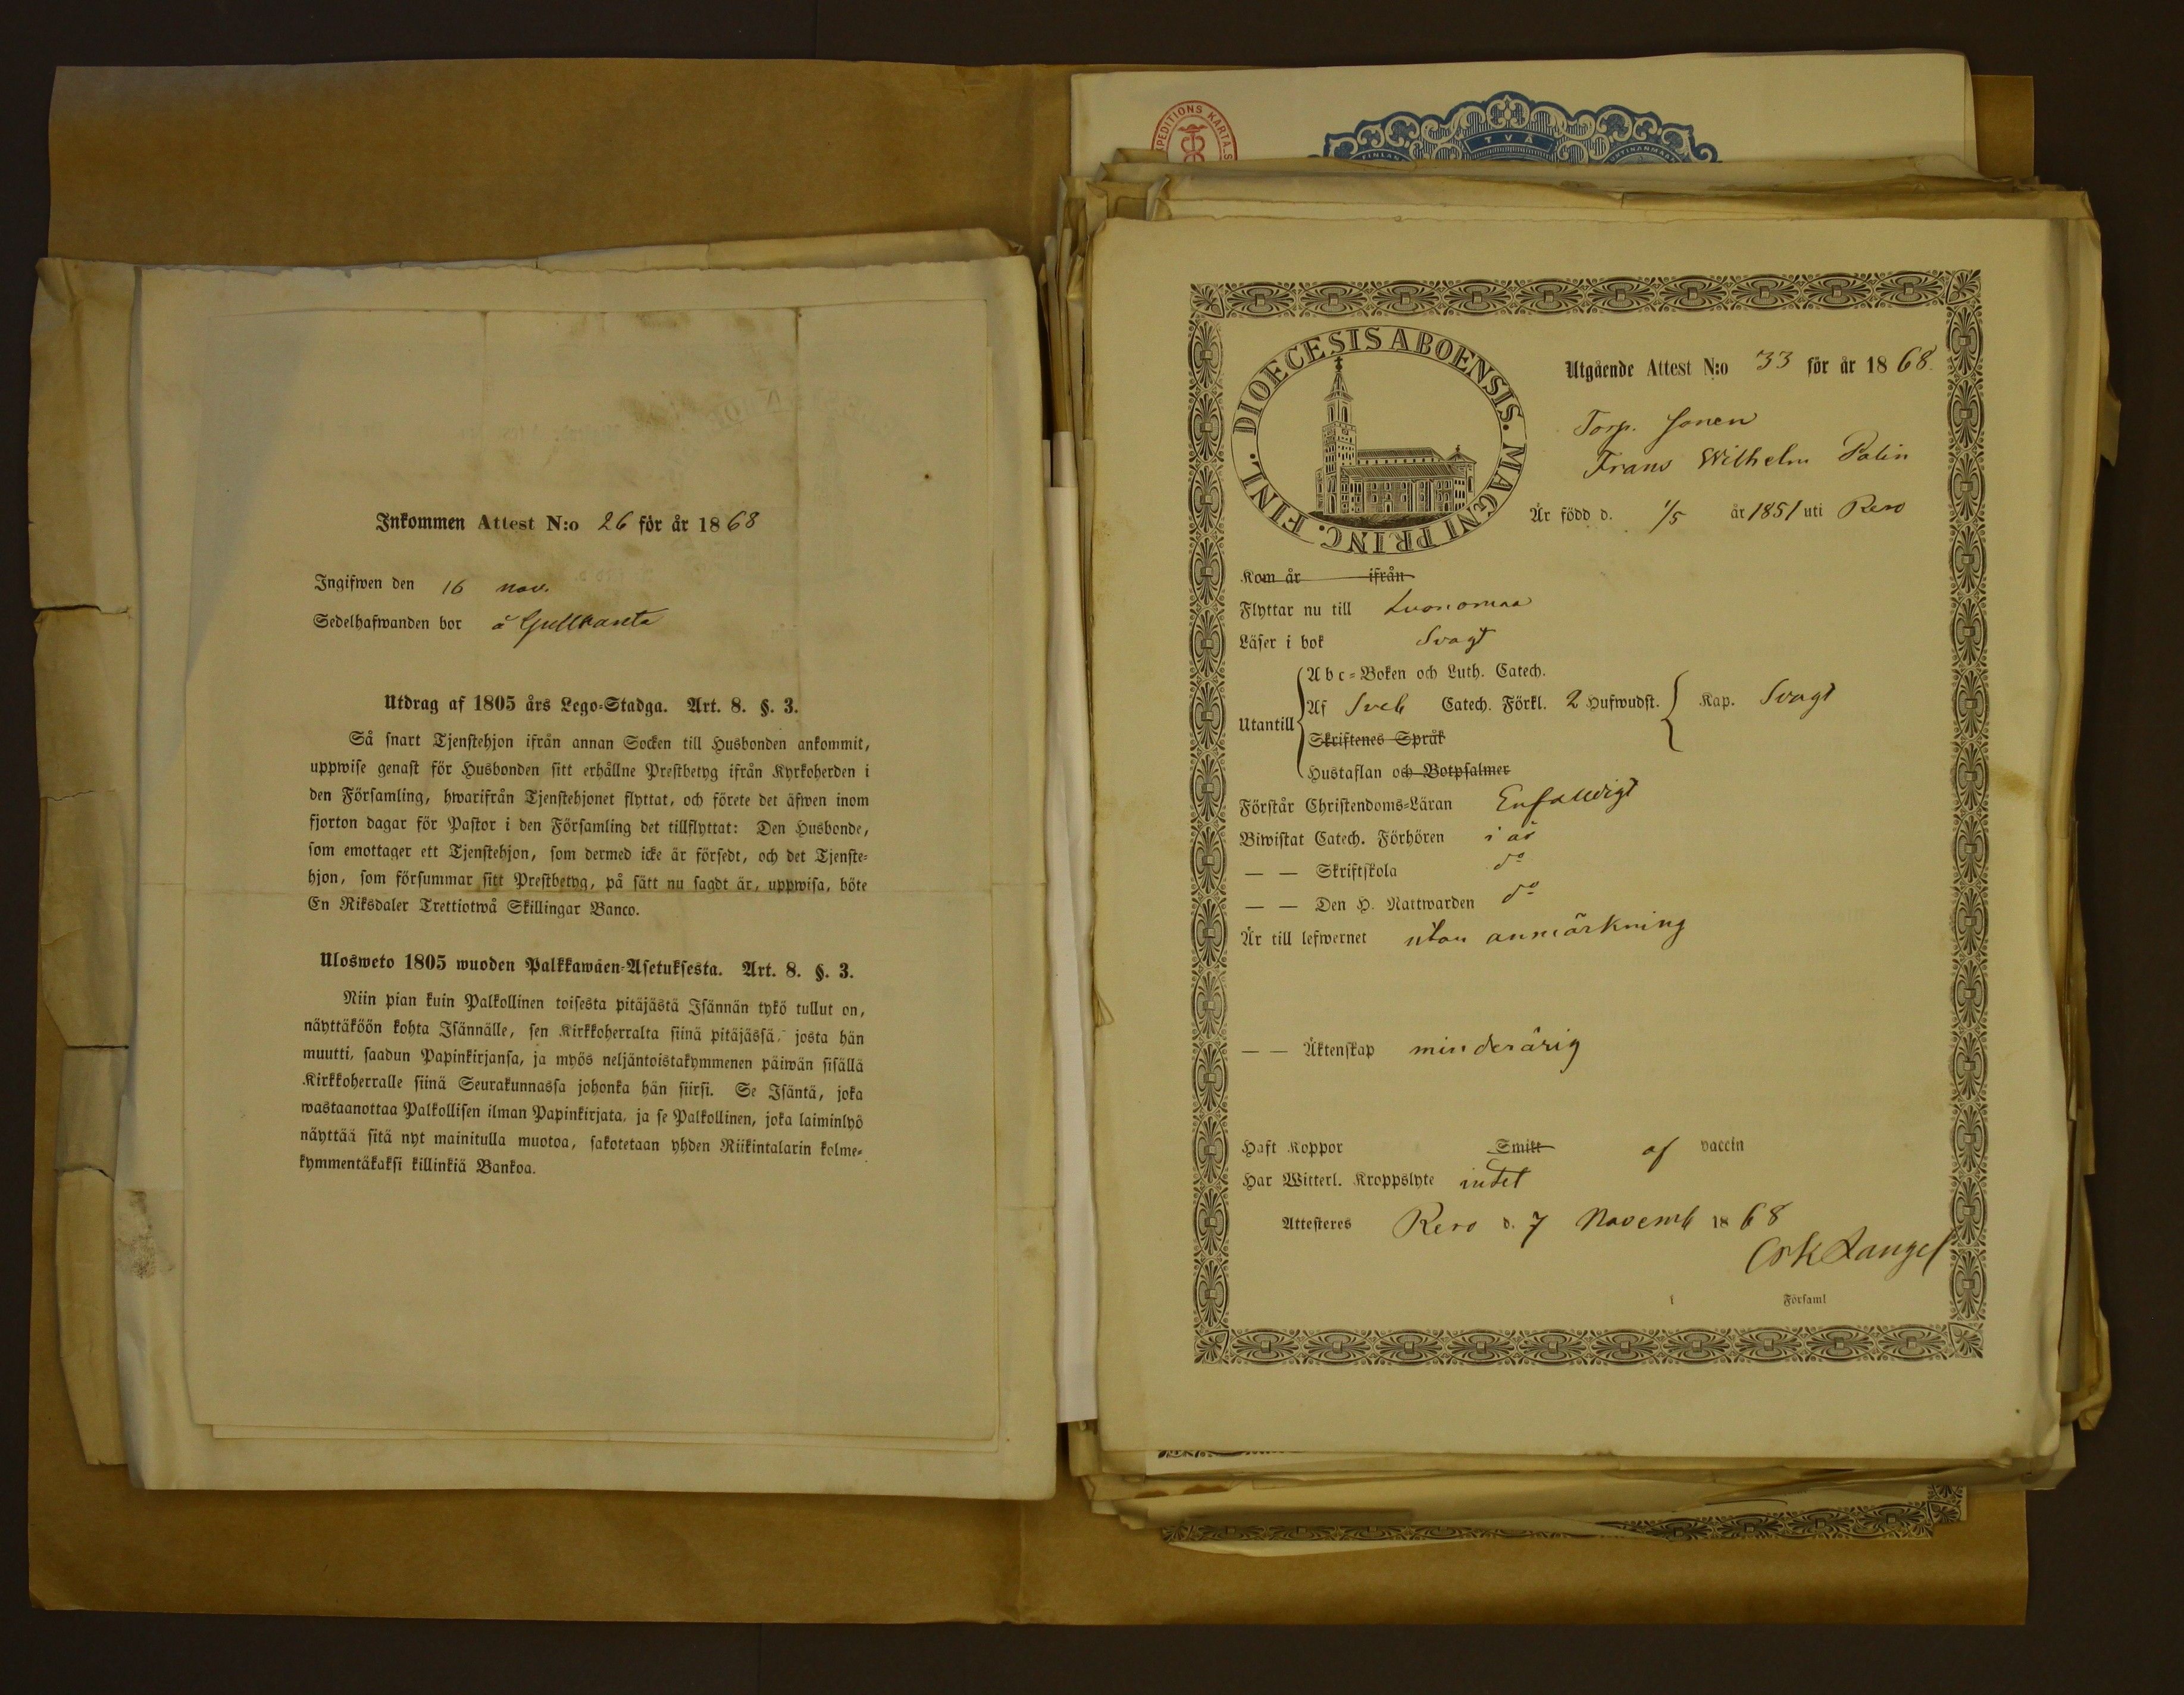 Inkommen Attest N:o 26 för år 1868
Ingifwen den 16 nov.
Sedelhafwanden bor å Gullkanta
Utdrag af 1805 års Lego-Stadga. Art. 8. §. 3.
Så snart Tjenstehjon ifrån annan Socken till Husbonden ankommit,
uppwise genast för Husbonden sitt erhållne Prestbetyg ifrån Kyrkoherden i
den Församling, hwarifrån Tjenstehjonet flyttat, och förete det äfwen inom
fjorton dagar för Pastor i den Församling det tillflyttat: Den Husbonde,
som emottager ett Tjenstehjon, som dermed icke är försedt, och det Tjenste-
hjon, som försummar sitt Prestbetyg, på sätt nu sagdt är, uppwisa, böte
En Riksdaler Trettiotwå Skillingar Banco.
Ulosweto 1805 wuoden Palkkawäen-Asetuksesta. Art. 8. §. 3.
Niin pian kuin Palkollinen toisesta pitäjästä Isännän tykö tullut on,
näyttäköön kohta Isännälle, sen Kirkkoherralta siinä pitäjässä, josta hän
muutti, saadun Papinkirjansa, ja myös neljäntoistakymmenen päiwän sisällä
Kirkkoherralle siinä Seurakunnassa johonka hän siirsi. Se Isäntä, joka
wastaanottaa Palkollisen ilman Papinkirjata, ja se Palkollinen, joka laiminlyö
näyttää sitä nyt mainitulla muotoa, sakotetaan yhden Riikintalarin kolme-
kymmentäkaksi killinkiä Bankoa.
PEDITIONS KARTA
TVÅ
DIOECESIS ABOENSIS. MAGNI PRINC. FINL.
Utgående Attest N:o 33 för år 1868.
Torp. Sonen
Frans Wilhelm Palin
Är född d. 1/5 år 1851 uti Reso
Kom år ifrån
Flyttar nu till Luonomaa
Läser i bok Svagt
Abc-Boken och Luth. Catech.
Utantill Af Sveb Catech. Förkl. 2 Hufwudst. Kap. Svagt
Skriftenes Språk
Hustaflan och Botpsalmer
Förstår Christendoms-Läran Enfaldigt
Biwistat Catech. Förhören i år
— — Skriftskola do
— — Den H. Nattwarden do
Är till lefwernet utan anmärkning
— — Äktenskap minderårig
Haft Koppor Smitt af vaccin
Har Witterl. Kroppslyte intet
Attesteres Reso d. 7 Novemb 1868
i Församl